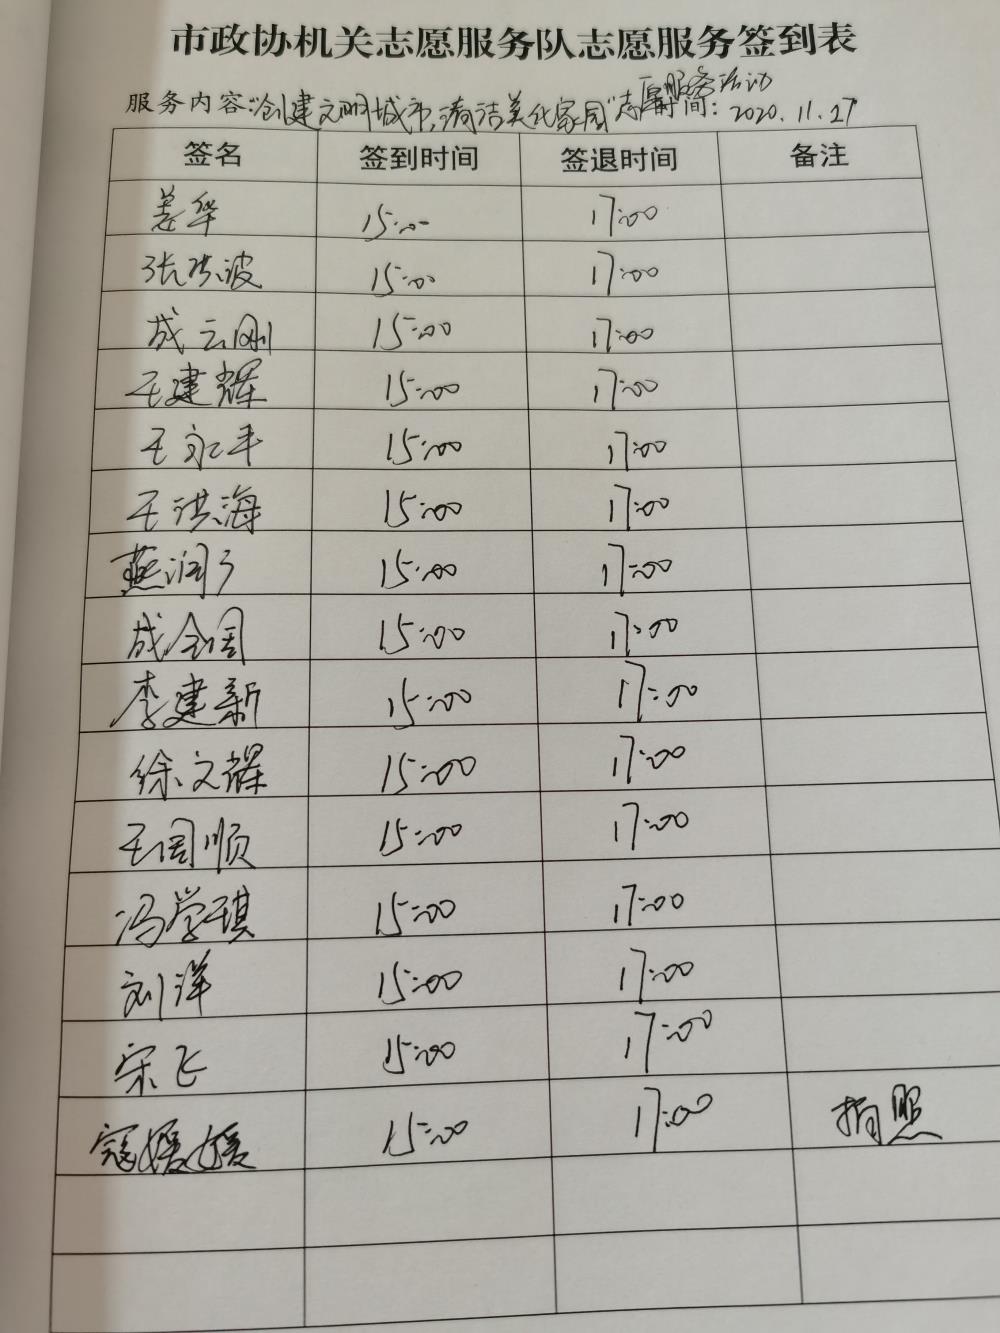 市政协机关志愿服务队志愿服务签到表
服务内容:"创建文明城市,清洁美化家园"志愿服务活动 时间: 2020.11.27
签名 签到时间 签退时间 备注
姜华 15:00 17:00
张洪波 15:00 17:00
成云刚 15:00 17:00
王建辉 15:00 17:00
王永丰 15:00 17:00
王洪海 15:00 17:00
燕润 15:00 17:00
成全周 15:00 17:00
李建新 15:00 17:00
徐文辉 15:00 17:00
王周顺 15:00 17:00
冯学琪 15:00 17:00
刘洋 15:00 17:00
宋飞 15:00 17:00
寇媛媛 15:00 17:00 拍照